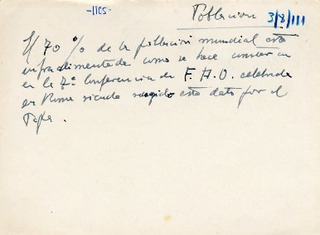 -1105-
Población 3/8/111
El 70 % de la población mundial está
infraalimentada como se hace constar en
en la 7ª Conferencia de F.A.O. celebrada
en Roma siendo recogido este dato por el
Papa.